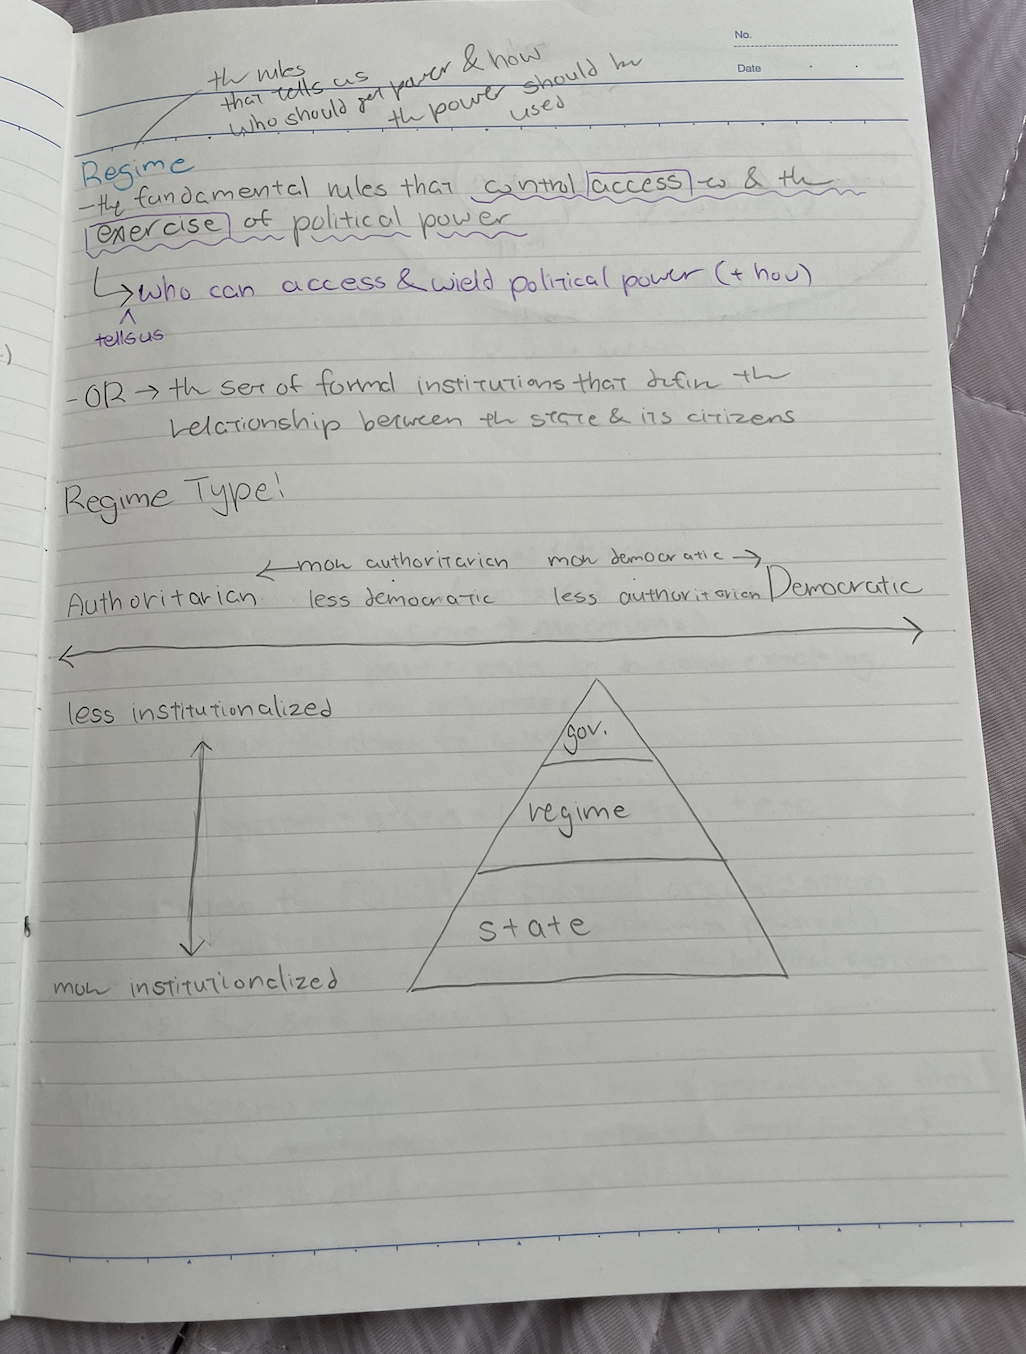 No.
Date
the rules
that tells us
who should get power & how
the power should be
used
Regime
- the fundamental rules that control access to & the
exercise of political power
↳ who can access & wield political power (+ how)
^
tells us
- OR → the set of formal institutions that define the
relationship between the state & its citizens
Regime Type!
← more authoritarian more democratic →
Authoritarian less democratic less authoritarian Democratic
less institutionalized
gov.
regime
state
more institutionalized